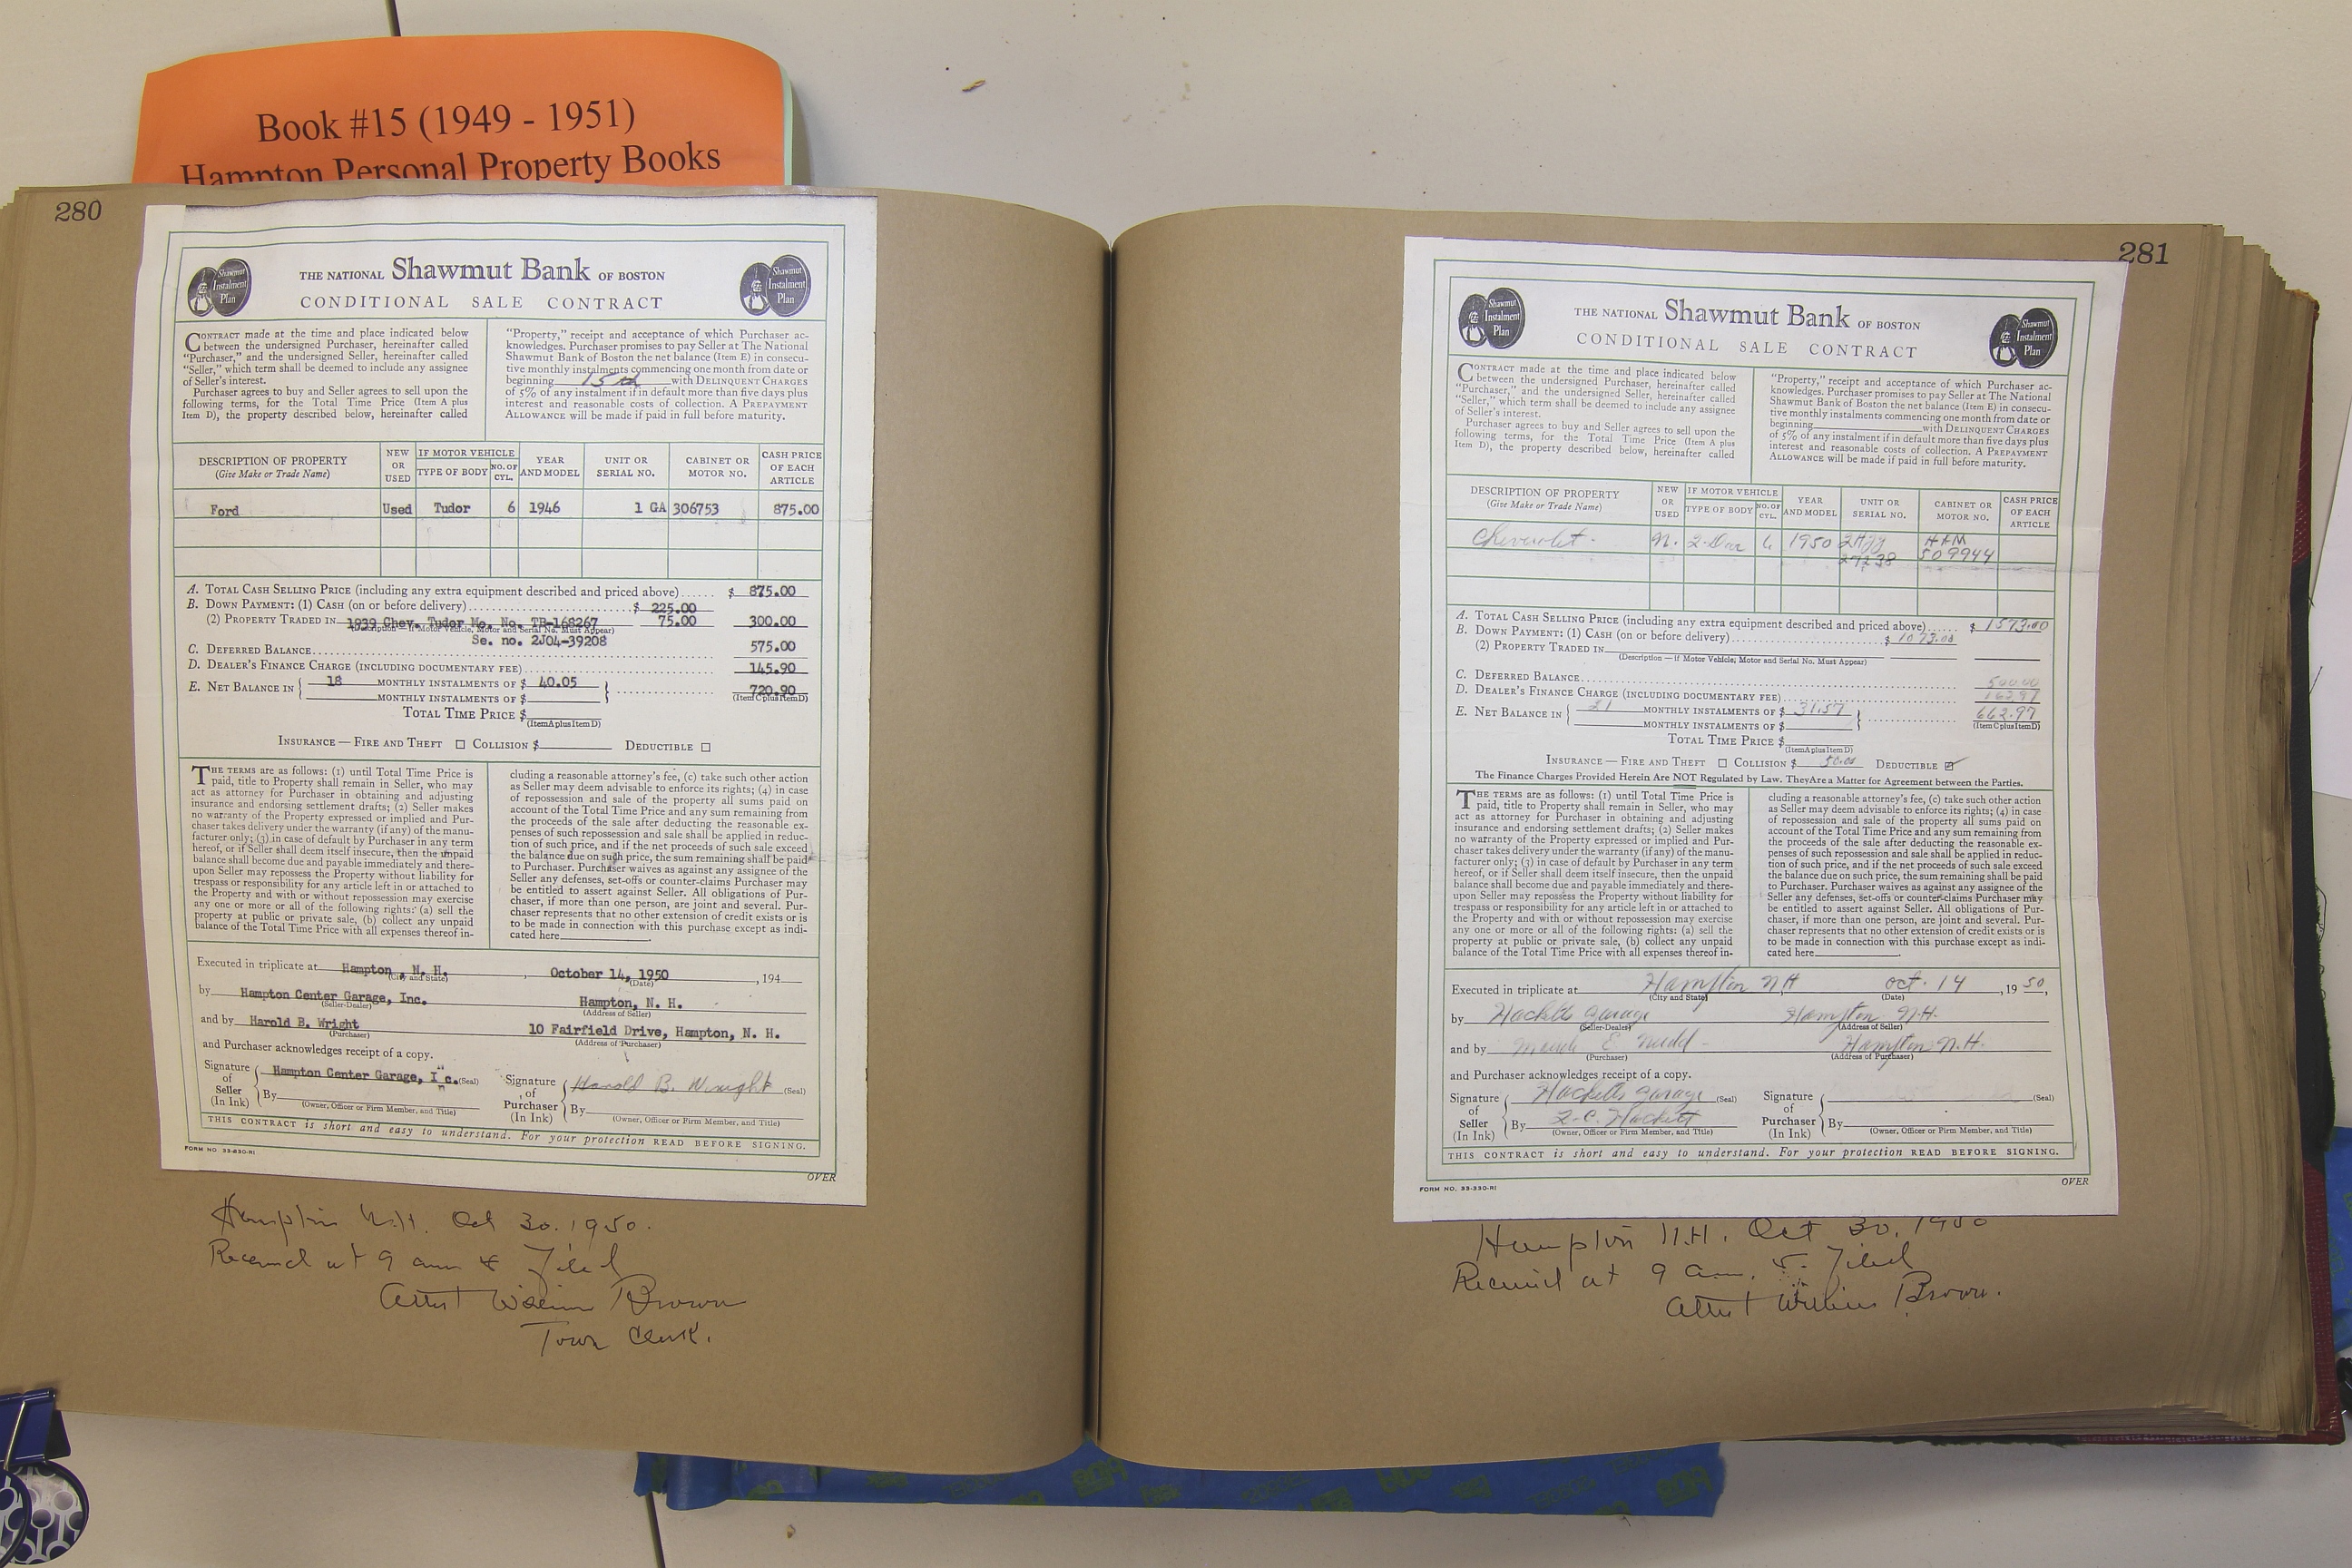 Book #15 (1949 - 1951)
Hampton Personal Property Books
280
Shawmut
Instalment
Plan
THE NATIONAL Shawmut Bank OF BOSTON
CONDITIONAL SALE CONTRACT
Shawmut
Instalment
Plan
CONTRACT made at the time and place indicated below
between the undersigned Purchaser, hereinafter called
"Purchaser," and the undersigned Seller, hereinafter called
"Seller," which term shall be deemed to include any assignee
of Seller's interest.
Purchaser agrees to buy and Seller agrees to sell upon the
following terms, for the Total Time Price (Item A plus
Item D), the property described below, hereinafter called
"Property," receipt and acceptance of which Purchaser ac-
knowledges. Purchaser promises to pay Seller at The National
Shawmut Bank of Boston the net balance (Item E) in consecu-
tive monthly instalments commencing one month from date or
beginning 15th with DELINQUENT CHARGES
of 5% of any instalment if in default more than five days plus
interest and reasonable costs of collection. A PREPAYMENT
ALLOWANCE will be made if paid in full before maturity.
DESCRIPTION OF PROPERTY (Give Make or Trade Name) NEW OR USED IF MOTOR VEHICLE TYPE OF BODY NO. OF CYL. YEAR AND MODEL UNIT OR SERIAL NO. CABINET OR MOTOR NO. CASH PRICE OF EACH ARTICLE
Ford Used Tudor 6 1946 1 GA 306753 875.00
A. TOTAL CASH SELLING PRICE (including any extra equipment described and priced above) $ 875.00
B. DOWN PAYMENT: (1) CASH (on or before delivery) $ 225.00
(2) PROPERTY TRADED IN 1939 Chev. Tudor Mo. No. TB-168267 75.00 300.00
(Description — if Motor Vehicle, Motor and Serial No. Must Appear)
Se. no. 2J04-39208
C. DEFERRED BALANCE 575.00
D. DEALER'S FINANCE CHARGE (INCLUDING DOCUMENTARY FEE) 145.90
E. NET BALANCE IN 18 MONTHLY INSTALMENTS OF $ 40.05 720.90
MONTHLY INSTALMENTS OF $ (Item C plus Item D)
TOTAL TIME PRICE $
(Item A plus Item D)
INSURANCE — FIRE AND THEFT ☐ COLLISION $ DEDUCTIBLE ☐
THE TERMS are as follows: (1) until Total Time Price is
paid, title to Property shall remain in Seller, who may
act as attorney for Purchaser in obtaining and adjusting
insurance and endorsing settlement drafts; (2) Seller makes
no warranty of the Property expressed or implied and Pur-
chaser takes delivery under the warranty (if any) of the manu-
facturer only; (3) in case of default by Purchaser in any term
hereof, or if Seller shall deem itself insecure, then the unpaid
balance shall become due and payable immediately and there-
upon Seller may repossess the Property without liability for
trespass or responsibility for any article left in or attached to
the Property and with or without repossession may exercise
any one or more or all of the following rights: (a) sell the
property at public or private sale, (b) collect any unpaid
balance of the Total Time Price with all expenses thereof in-
cluding a reasonable attorney's fee, (c) take such other action
as Seller may deem advisable to enforce its rights; (4) in case
of repossession and sale of the property all sums paid on
account of the Total Time Price and any sum remaining from
the proceeds of the sale after deducting the reasonable ex-
penses of such repossession and sale shall be applied in reduc-
tion of such price, and if the net proceeds of such sale exceed
the balance due on such price, the sum remaining shall be paid
to Purchaser. Purchaser waives as against any assignee of the
Seller any defenses, set-offs or counter-claims Purchaser may
be entitled to assert against Seller. All obligations of Pur-
chaser, if more than one person, are joint and several. Pur-
chaser represents that no other extension of credit exists or is
to be made in connection with this purchase except as indi-
cated here
Executed in triplicate at Hampton, N. H. , October 14, 1950 , 194
(City and State) (Date)
by Hampton Center Garage, Inc. Hampton, N. H.
(Seller-Dealer) (Address of Seller)
and by Harold B. Wright 10 Fairfield Drive, Hampton, N. H.
(Purchaser) (Address of Purchaser)
and Purchaser acknowledges receipt of a copy.
Signature of Seller (In Ink) Hampton Center Garage, Inc. (Seal)
By
(Owner, Officer or Firm Member, and Title)
Signature of Purchaser (In Ink) Harold B. Wright (Seal)
By
(Owner, Officer or Firm Member, and Title)
THIS CONTRACT is short and easy to understand. For your protection READ BEFORE SIGNING.
FORM NO. 33-330-RI
OVER
Hampton N.H. Oct 30. 1950.
Received at 9 am & Filed
Attest William Brown
Town Clerk.
281
Shawmut
Instalment
Plan
THE NATIONAL Shawmut Bank OF BOSTON
CONDITIONAL SALE CONTRACT
Shawmut
Instalment
Plan
CONTRACT made at the time and place indicated below
between the undersigned Purchaser, hereinafter called
"Purchaser," and the undersigned Seller, hereinafter called
"Seller," which term shall be deemed to include any assignee
of Seller's interest.
Purchaser agrees to buy and Seller agrees to sell upon the
following terms, for the Total Time Price (Item A plus
Item D), the property described below, hereinafter called
"Property," receipt and acceptance of which Purchaser ac-
knowledges. Purchaser promises to pay Seller at The National
Shawmut Bank of Boston the net balance (Item E) in consecu-
tive monthly instalments commencing one month from date or
beginning with DELINQUENT CHARGES
of 5% of any instalment if in default more than five days plus
interest and reasonable costs of collection. A PREPAYMENT
ALLOWANCE will be made if paid in full before maturity.
DESCRIPTION OF PROPERTY (Give Make or Trade Name) NEW OR USED IF MOTOR VEHICLE TYPE OF BODY NO. OF CYL. YEAR AND MODEL UNIT OR SERIAL NO. CABINET OR MOTOR NO. CASH PRICE OF EACH ARTICLE
Chevrolet. N. 2-Door 6 1950 HAM
27238 509944
A. TOTAL CASH SELLING PRICE (including any extra equipment described and priced above) $ 1573.00
B. DOWN PAYMENT: (1) CASH (on or before delivery) $ 1073.00
(2) PROPERTY TRADED IN
(Description — if Motor Vehicle, Motor and Serial No. Must Appear)
C. DEFERRED BALANCE 500.00
D. DEALER'S FINANCE CHARGE (INCLUDING DOCUMENTARY FEE) 162.97
E. NET BALANCE IN 21 MONTHLY INSTALMENTS OF $ 31.57 662.97
MONTHLY INSTALMENTS OF $ (Item C plus Item D)
TOTAL TIME PRICE $
(Item A plus Item D)
INSURANCE — FIRE AND THEFT ☐ COLLISION $ 50.00 DEDUCTIBLE ☑
The Finance Charges Provided Herein Are NOT Regulated by Law. They Are a Matter for Agreement between the Parties.
THE TERMS are as follows: (1) until Total Time Price is
paid, title to Property shall remain in Seller, who may
act as attorney for Purchaser in obtaining and adjusting
insurance and endorsing settlement drafts; (2) Seller makes
no warranty of the Property expressed or implied and Pur-
chaser takes delivery under the warranty (if any) of the manu-
facturer only; (3) in case of default by Purchaser in any term
hereof, or if Seller shall deem itself insecure, then the unpaid
balance shall become due and payable immediately and there-
upon Seller may repossess the Property without liability for
trespass or responsibility for any article left in or attached to
the Property and with or without repossession may exercise
any one or more or all of the following rights: (a) sell the
property at public or private sale, (b) collect any unpaid
balance of the Total Time Price with all expenses thereof in-
cluding a reasonable attorney's fee, (c) take such other action
as Seller may deem advisable to enforce its rights; (4) in case
of repossession and sale of the property all sums paid on
account of the Total Time Price and any sum remaining from
the proceeds of the sale after deducting the reasonable ex-
penses of such repossession and sale shall be applied in reduc-
tion of such price, and if the net proceeds of such sale exceed
the balance due on such price, the sum remaining shall be paid
to Purchaser. Purchaser waives as against any assignee of the
Seller any defenses, set-offs or counter-claims Purchaser may
be entitled to assert against Seller. All obligations of Pur-
chaser, if more than one person, are joint and several. Pur-
chaser represents that no other extension of credit exists or is
to be made in connection with this purchase except as indi-
cated here
Executed in triplicate at Hampton NH Oct. 14 , 19 50,
(City and State) (Date)
by Hacketts Garage Hampton N.H.
(Seller-Dealer) (Address of Seller)
and by E. Nudd Hampton N.H.
(Purchaser) (Address of Purchaser)
and Purchaser acknowledges receipt of a copy.
Signature of Seller (In Ink) Hacketts Garage (Seal)
By Hackett
(Owner, Officer or Firm Member, and Title)
Signature of Purchaser (In Ink) (Seal)
By
(Owner, Officer or Firm Member, and Title)
THIS CONTRACT is short and easy to understand. For your protection READ BEFORE SIGNING.
FORM NO. 33-330-RI
OVER
Hampton N.H. Oct 30, 1950
Received at 9 am. & Filed
Attest William Brown.